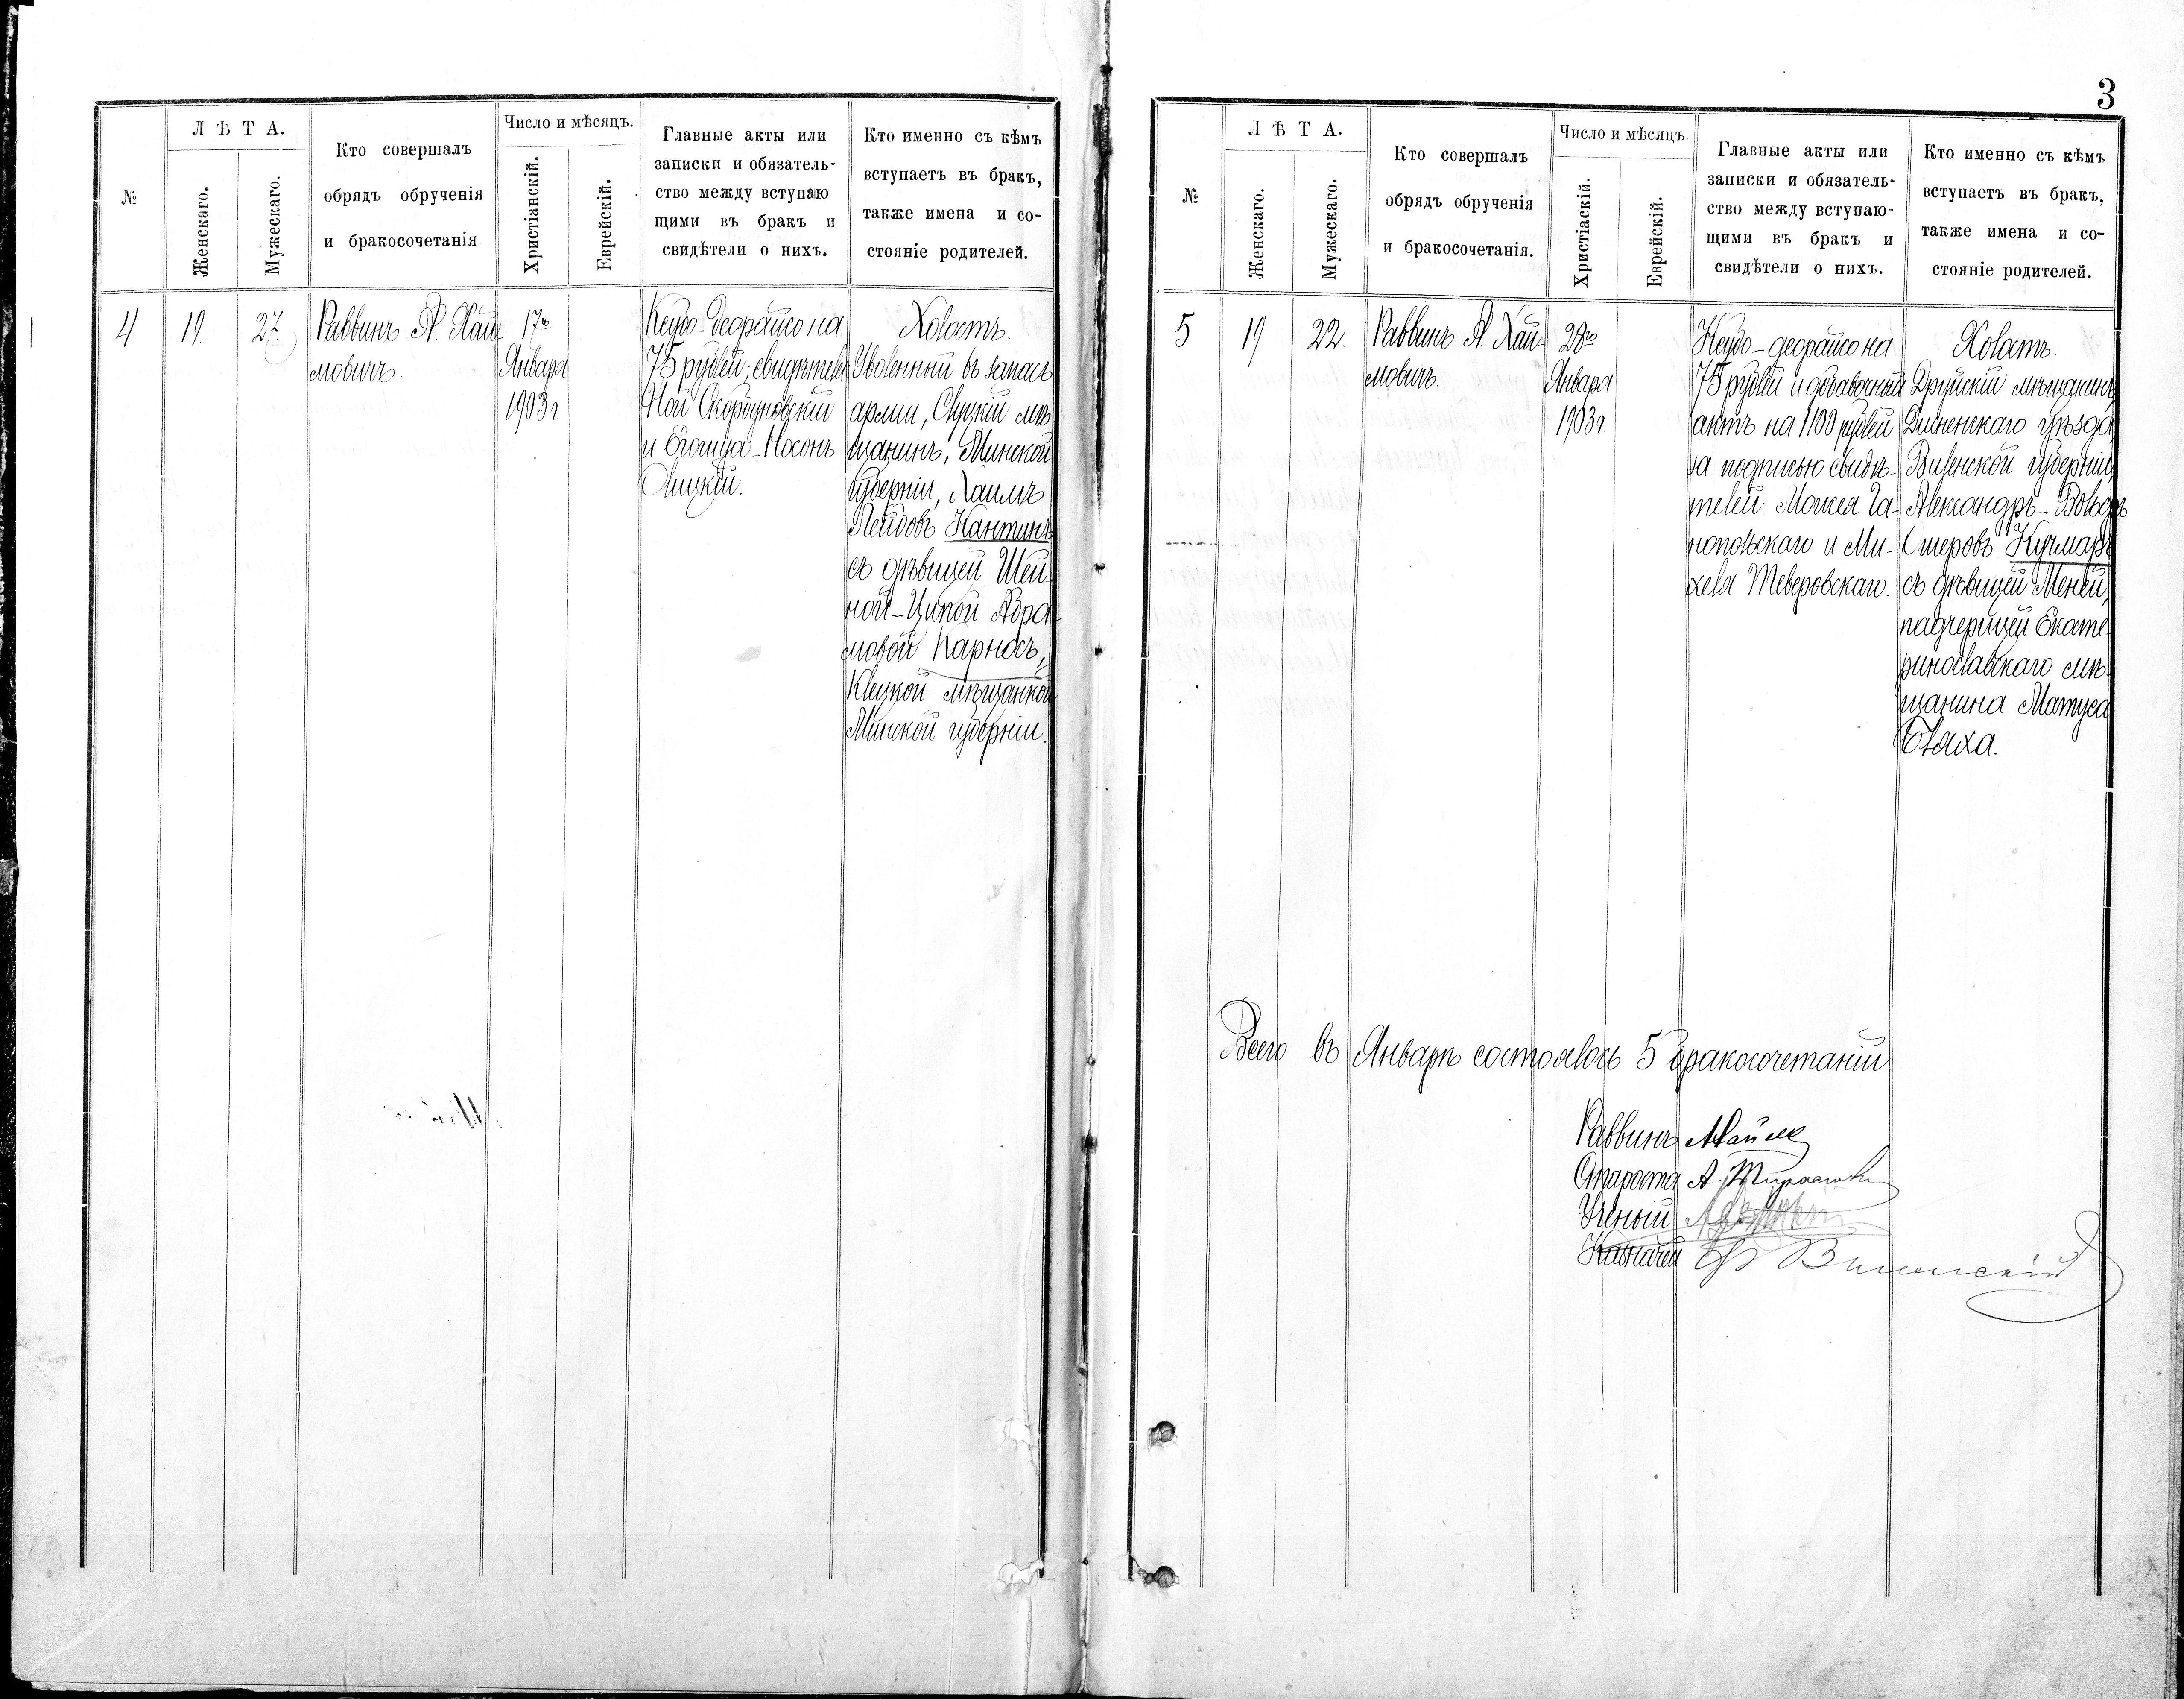 №
Л Ѣ Т А.
Женскаго.
Мужескаго.
Кто совершалъ
обрядъ обрученія
и бракосочетанія
Число и мѣсяцъ.
Христіанскій.
Еврейскій.
Главные акты или
записки и обязатель-
ство между вступаю
щими въ бракъ и
свидѣтели о нихъ.
Кто именно съ кѣмъ
вступаетъ въ бракъ,
также имена и со-
стояніе родителей.
4
19.
27.
Раввинъ А. Хай-
мовичъ.
17го
Января
1903 г
на
75 рублей; свидѣтели
Ной Скордуновскій
и Носонъ
Холостъ.
Уволенный въ запасъ
арміи, Слуцкій мѣ-
щанинъ, Минской
губерніи, Хаимъ
Лейбовъ Кантинъ
съ дѣвицей Шей-
ной-Ципой Абра-
мовой Карносъ,
Клецкой мѣщанкой
Минской губерніи.
3
№
Л Ѣ Т А.
Женскаго.
Мужескаго.
Кто совершалъ
обрядъ обрученія
и бракосочетанія.
Число и мѣсяцъ.
Христіаскій.
Еврейскій.
Главные акты или
записки и обязатель-
ство между вступаю-
щими въ бракъ и
свидѣтели о нихъ.
Кто именно съ кѣмъ
вступаетъ въ бракъ,
также имена и со-
стояніе родителей.
5
19
22.
Раввинъ А. Хай-
мовичъ.
28го
Января
1903 г
на
75 рублей и добавочный
актъ на 1100 рублей
за подписью свидѣ-
телей: Моисея Га-
нопольскаго и Ми-
хеля Теверовскаго.
Холостъ.
Друйскій мѣщанинъ,
Дисненскаго уѣзда,
Виленской губерніи,
Александръ-Вольфъ
Ошеровъ Кучмаръ
съ дѣвицей Меней,
падчерицей Екате-
ринославскаго мѣ-
щанина Матуса
Бляха.
Всего въ Январѣ состоялось 5 бракосочетаній
Раввинъ
Староста А.
Ученый
Казначей Виленскій